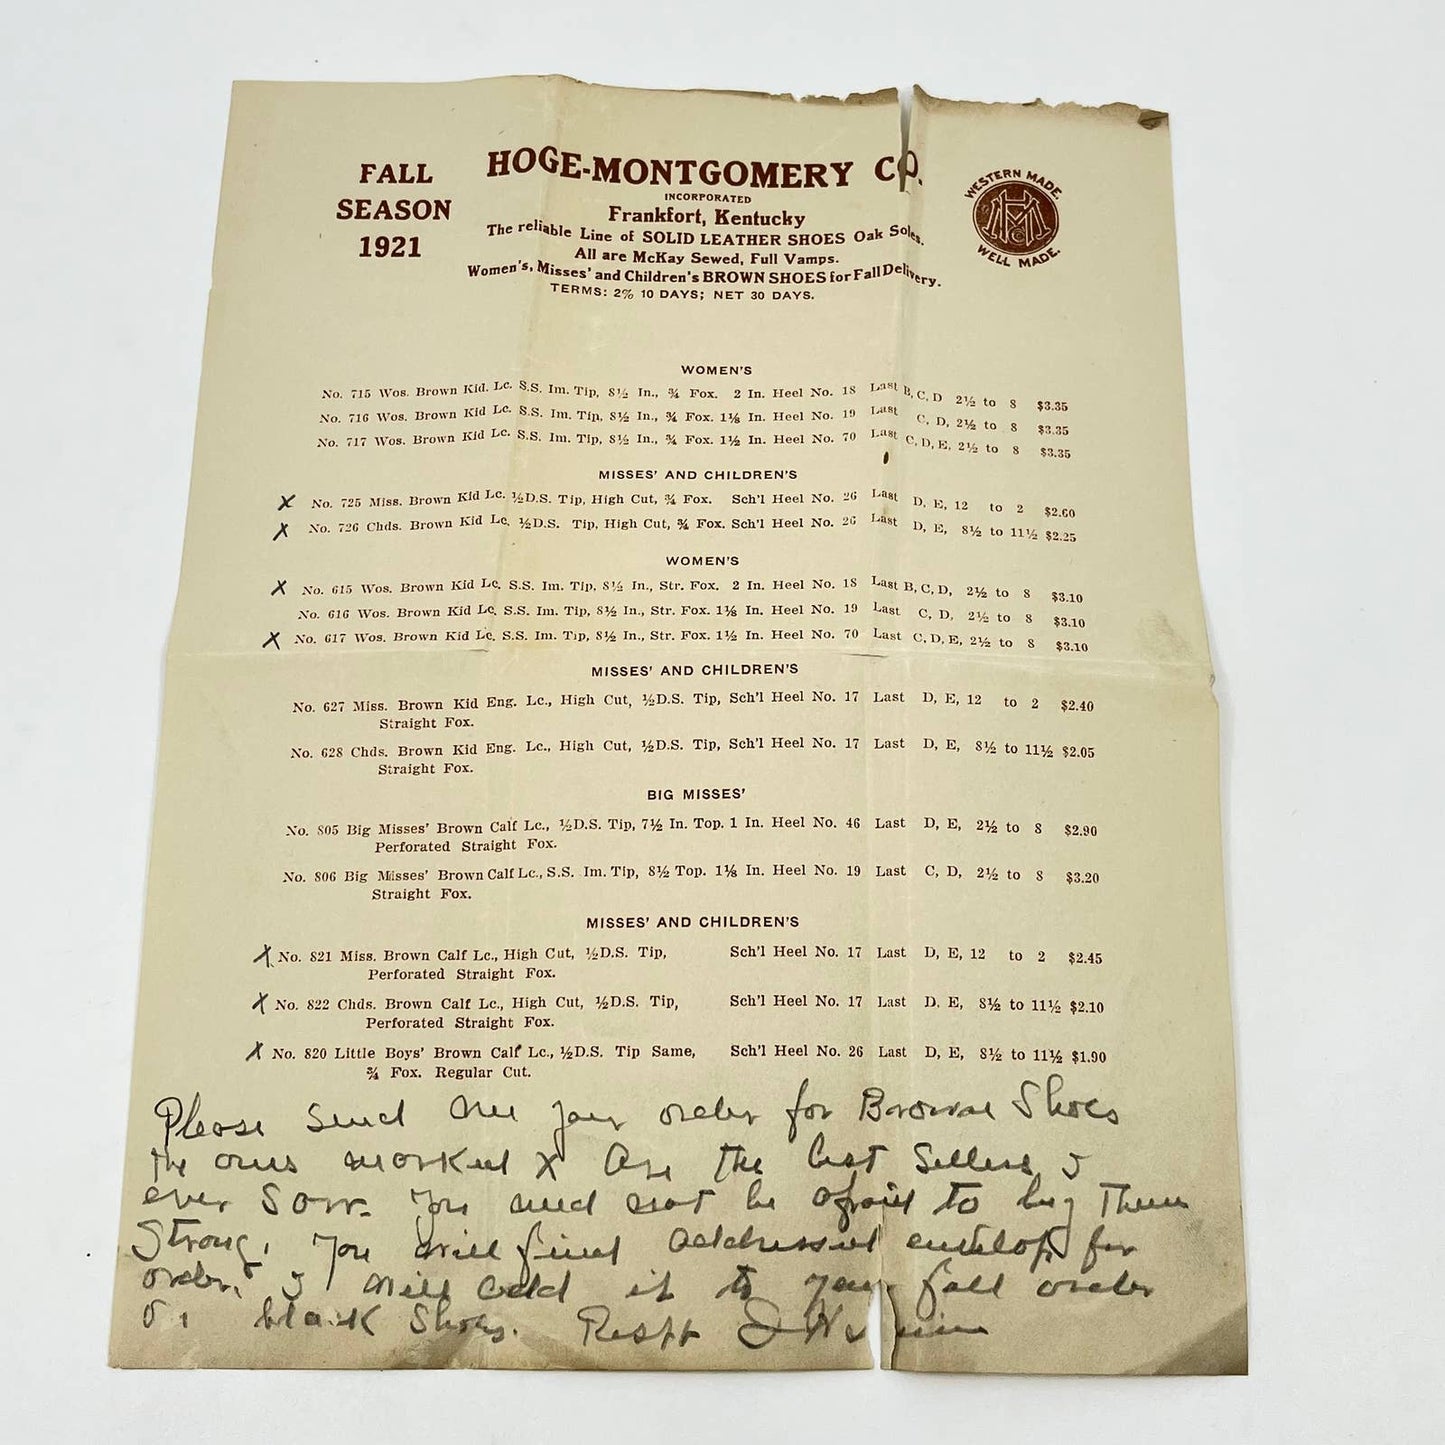 FALL
SEASON
1921
HOGE-MONTGOMERY CO.
INCORPORATED
Frankfort, Kentucky
The reliable Line of SOLID LEATHER SHOES Oak Soles.
All are McKay Sewed, Full Vamps.
Women's, Misses' and Children's BROWN SHOES for Fall Delivery.
TERMS: 2% 10 DAYS; NET 30 DAYS.
WESTERN MADE.
HMC
WELL MADE.
WOMEN'S
No. 715 Wos. Brown Kid. Lc. S.S. Im. Tip, 8½ In., ¾ Fox. 2 In. Heel No. 18 Last B, C, D 2½ to 8 $3.35
No. 716 Wos. Brown Kid Lc. S.S. Im. Tip, 8½ In., ¾ Fox. 1⅛ In. Heel No. 19 Last C, D, 2½ to 8 $3.35
No. 717 Wos. Brown Kid Lc. S.S. Im. Tip, 8½ In., ¾ Fox. 1½ In. Heel No. 70 Last C, D, E, 2½ to 8 $3.35
MISSES' AND CHILDREN'S
X No. 725 Miss. Brown Kid Lc. ½D.S. Tip, High Cut, ¾ Fox. Sch'l Heel No. 26 Last D, E, 12 to 2 $2.60
X No. 726 Chds. Brown Kid Lc. ½D.S. Tip, High Cut, ¾ Fox. Sch'l Heel No. 26 Last D, E, 8½ to 11½ $2.25
WOMEN'S
X No. 615 Wos. Brown Kid Lc. S.S. Im. Tip, 8½ In., Str. Fox. 2 In. Heel No. 18 Last B, C, D, 2½ to 8 $3.10
No. 616 Wos. Brown Kid Lc. S.S. Im. Tip, 8½ In., Str. Fox. 1⅛ In. Heel No. 19 Last C, D, 2½ to 8 $3.10
X No. 617 Wos. Brown Kid Lc. S.S. Im. Tip, 8½ In., Str. Fox. 1½ In. Heel No. 70 Last C, D, E, 2½ to 8 $3.10
MISSES' AND CHILDREN'S
No. 627 Miss. Brown Kid Eng. Lc., High Cut, ½D.S. Tip, Sch'l Heel No. 17 Last D, E, 12 to 2 $2.40
Straight Fox.
No. 628 Chds. Brown Kid Eng. Lc., High Cut, ½D.S. Tip, Sch'l Heel No. 17 Last D, E, 8½ to 11½ $2.05
Straight Fox.
BIG MISSES'
No. 805 Big Misses' Brown Calf Lc., ½D.S. Tip, 7½ In. Top. 1 In. Heel No. 46 Last D, E, 2½ to 8 $2.90
Perforated Straight Fox.
No. 806 Big Misses' Brown Calf Lc., S.S. Im. Tip, 8½ Top. 1⅛ In. Heel No. 19 Last C, D, 2½ to 8 $3.20
Straight Fox.
MISSES' AND CHILDREN'S
X No. 821 Miss. Brown Calf Lc., High Cut, ½D.S. Tip, Sch'l Heel No. 17 Last D, E, 12 to 2 $2.45
Perforated Straight Fox.
X No. 822 Chds. Brown Calf Lc., High Cut, ½D.S. Tip, Sch'l Heel No. 17 Last D, E, 8½ to 11½ $2.10
Perforated Straight Fox.
X No. 820 Little Boys' Brown Calf Lc., ½D.S. Tip Same, Sch'l Heel No. 26 Last D, E, 8½ to 11½ $1.90
¾ Fox. Regular Cut.
Please send me your order for Browne Shoes
the ones marked X are the best sellers I
ever Sow. You need not be afraid to buy Them
Strong, You will find addressed envelop for
order, I will add it to your fall order
of black Shoes. Respt J